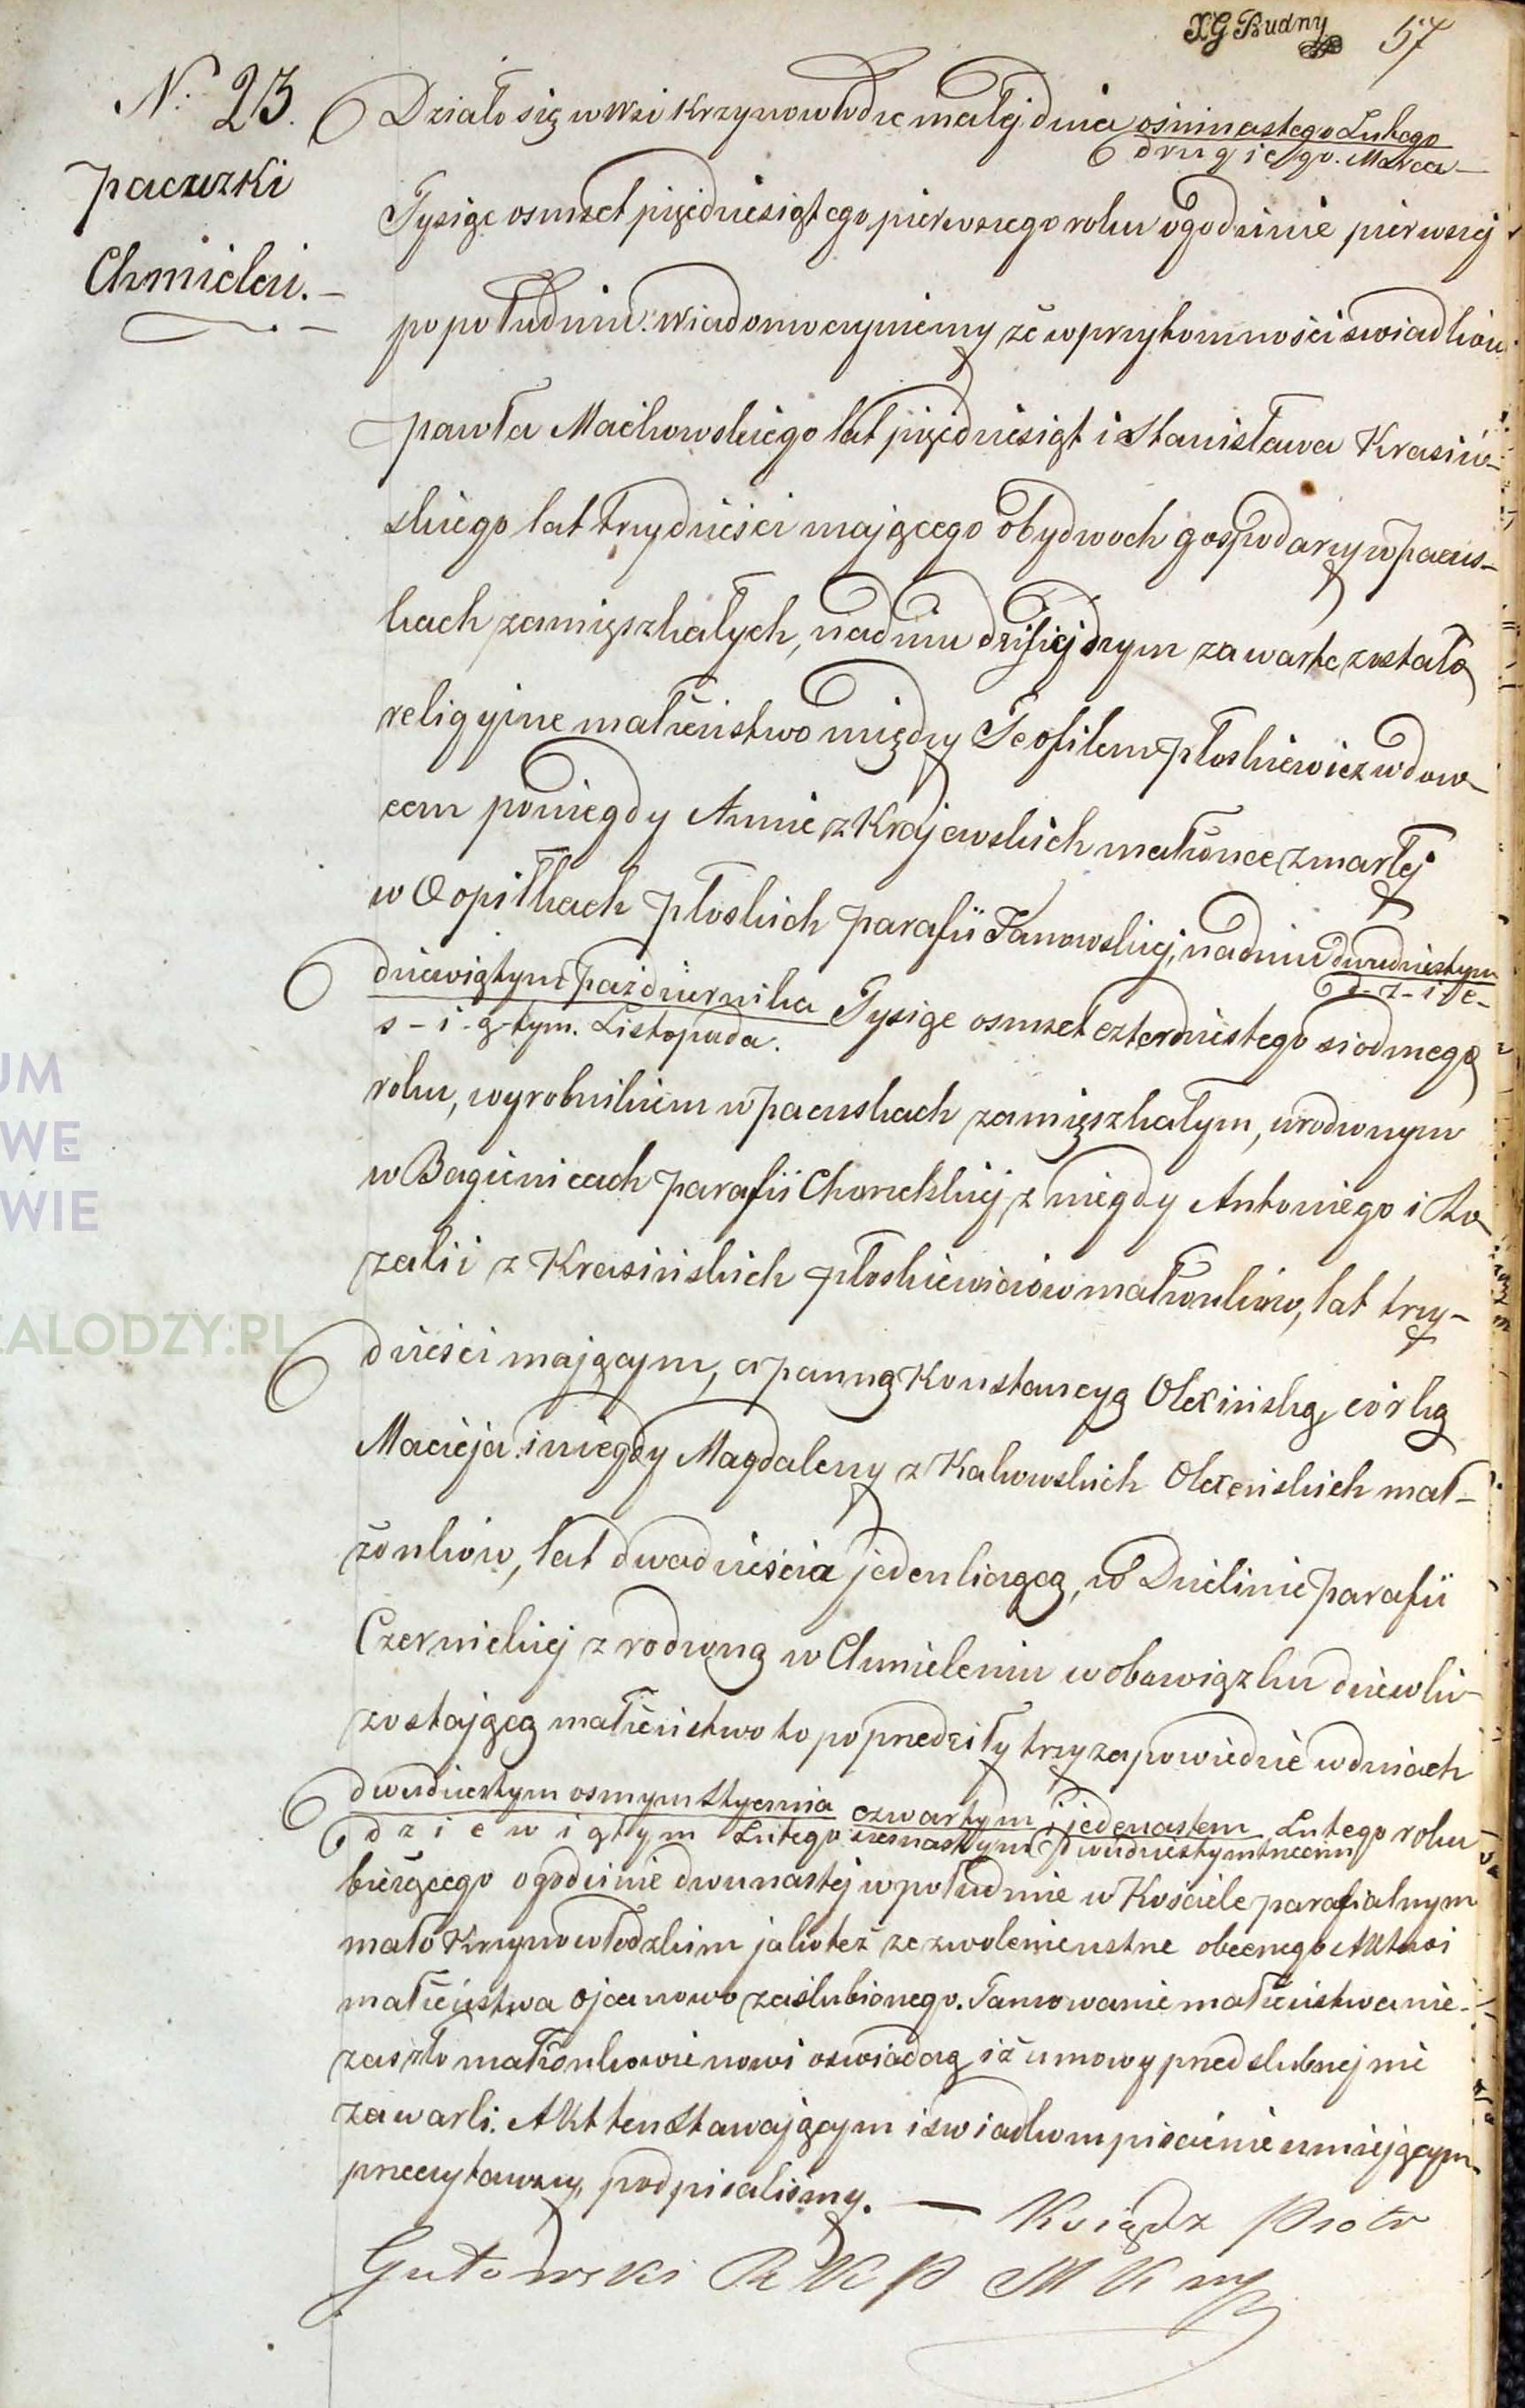 XG Budny 57
N. 23.
Paczuzki
Chmieleń. –
Działo się w Wsi Krzynowłodze małej dnia ośmnastego Lutego
drugiego. Marca –
Tysiąc osmset pięćdziesiątego pierwszego roku o godzinie pierwszej
po południu. Wiadomo czyniemy że w przytomności świadków
Pawła Machowskiego lat pięćdziesiąt i Stanisława Krasiń-
skiego lat trzydzieści mającego obydwoch gospodarzy w Pacus-
kach zamięszkałych, na dniu dzisiejszym zawarte zostało
religyine małżeństwo między Teofilem Płoskiewicz wdow-
cem po niegdy Annie z Krajewskich małżonce zmarłej
w Opiłkach Płoskich parafii Janowskiej, na dniu dwudziestym
d-z-i-e-
dziewiątym Października Tysiąc osmset czterdziestego siodmego
s-i-ą-tym. Listopada.
roku, wyrobnikiem w Pacuskach zamięszkałym, urodzonym
w Bagienicach Parafii Chorzelskiej z niegdy Antoniego i Ro-
zalii z Krasińskich Płoskiewiczów małżonków, lat trzy-
dzieści mającym, a panną Konstancyą Olexińską, córką
Macieja i niegdy Magdaleny z Kakowskich Olexeńskich mał-
żonków, lat dwadzieścia jeden liczącą, w Dzielinie Parafii
Czernickiej zrodzoną w Chmieleniu w obowiązku dziewki
zostającą małżeństwo to poprzedziły trzy zapowiedzie w dniach
dwudziestym osmym Stycznia czwartym i jedenastem Lutego roku
dziewiątym Lutego szesnastym dwudziestym trzecim
bieżącego o godzinie dwunastej w południe w Kościele parafialnym
mało Krzynowłodzkim jako też zezwolenie ustne obecnego Aktowi
małżeństwa ojca nowo zaślubionego. Tamowanie małżeństwa nie-
zaszło małżonkowie nowi oswiadczą iż umowy przedslubnej nie
zawarli. Akt ten Stawającym i swiadkom pisać nie umiejącym
przeczytawszy, podpisalismy. — Ksiądz Piotr
Gutowski R K P M K mp
UM
WE
WIE
EALODZY.PL